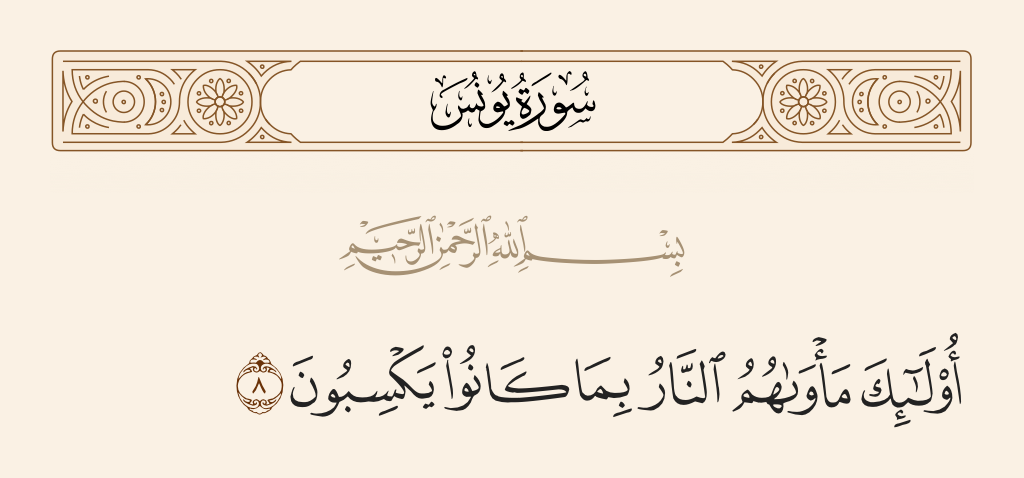 سُورَةُ يُونُسَ
بِسْمِ ٱللَّهِ ٱلرَّحْمَٰنِ ٱلرَّحِيمِ
أُو۟لَٰٓئِكَ مَأْوَىٰهُمُ ٱلنَّارُ بِمَا كَانُوا۟ يَكْسِبُونَ ٨